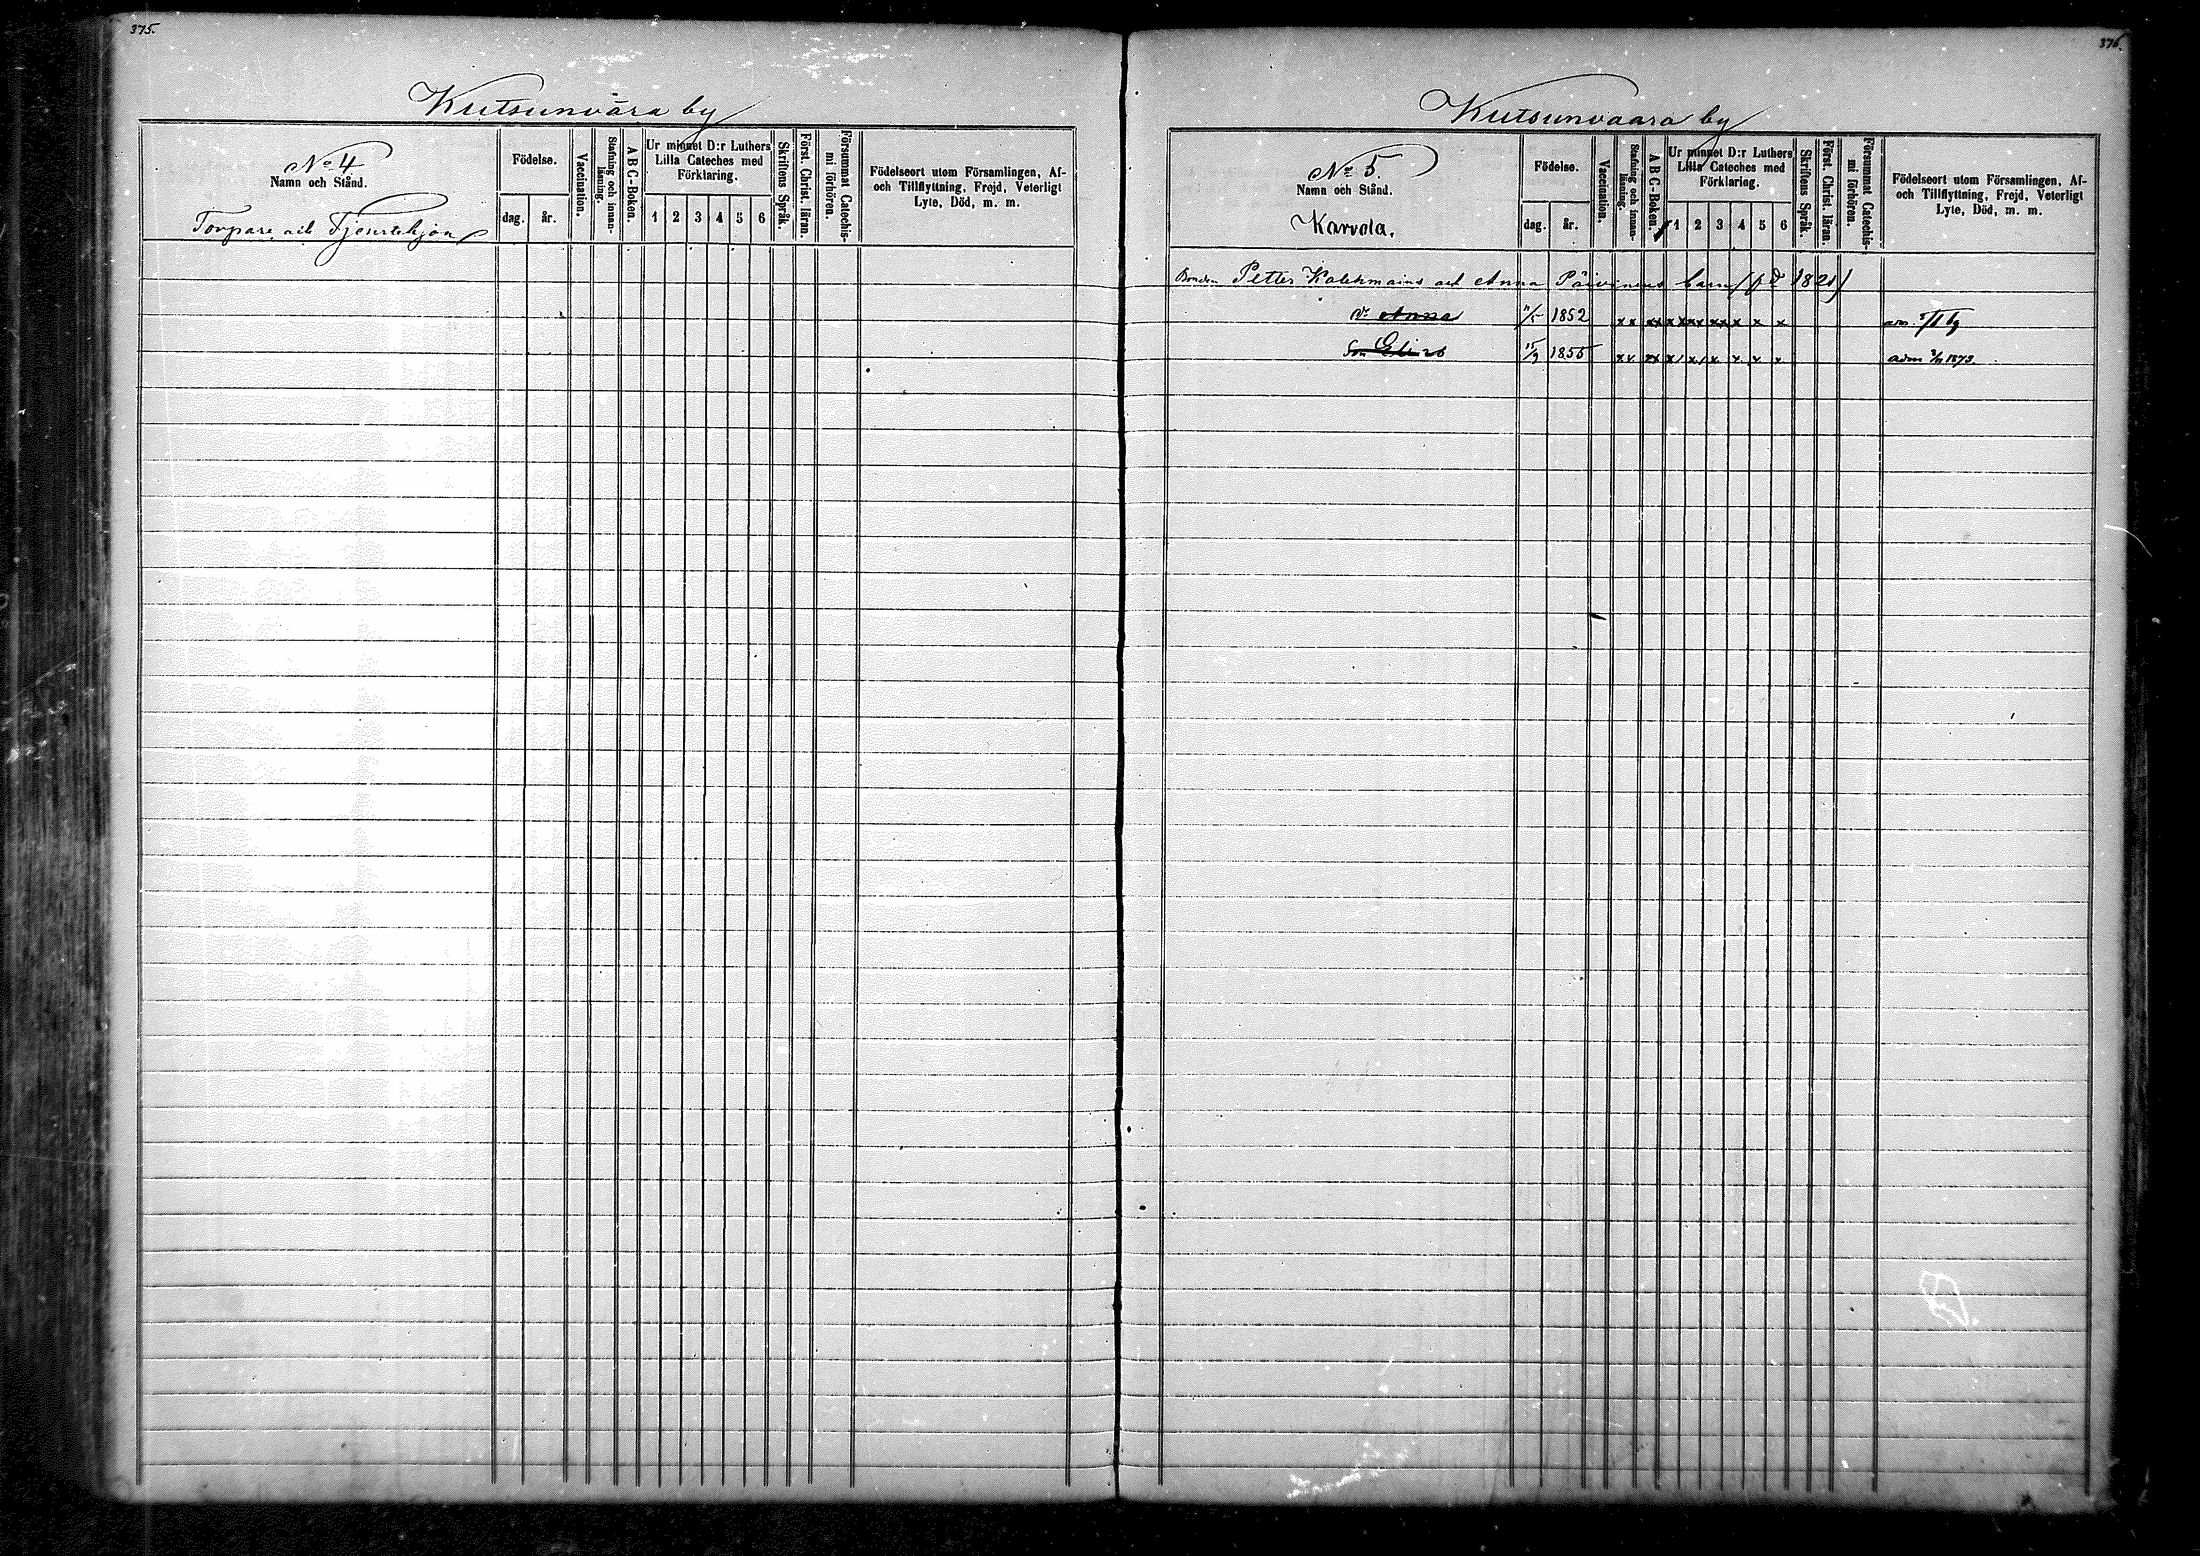 375.
Kutsunvara by
No 4
Namn och Stånd.
Torpare och Tjenstehjon
Födelse.
dag. år.
Vaccination.
Stafning och innanläsning.
A B C-Boken.
Ur minnet D:r Luthers Lilla Cateches med Förklaring.
1 2 3 4 5 6
Skriftens Språk.
Först. Christ. läran.
Försummat Catechismi förhören.
Födelseort utom Församlingen, Af- och Tillflyttning, Frejd, Veterligt Lyte, Död, m. m.
376.
Kutsunvaara by
No 5.
Namn och Stånd.
Karvola.
Födelse.
dag. år.
Vaccination.
Stafning och innanläsning.
A B C-Boken.
Ur minnet D:r Luthers Lilla Cateches med Förklaring.
1 2 3 4 5 6
Skriftens Språk.
Först. Christ. läran.
Försummat Catechismi förhören.
Födelseort utom Församlingen, Af- och Tillflyttning, Frejd, Veterligt Lyte, Död, m. m.
Bonden Petter och Anna Päivinens barn (fd 1821)
Dr Anna 1852
Son Elias 15/9 1855 adm 1873